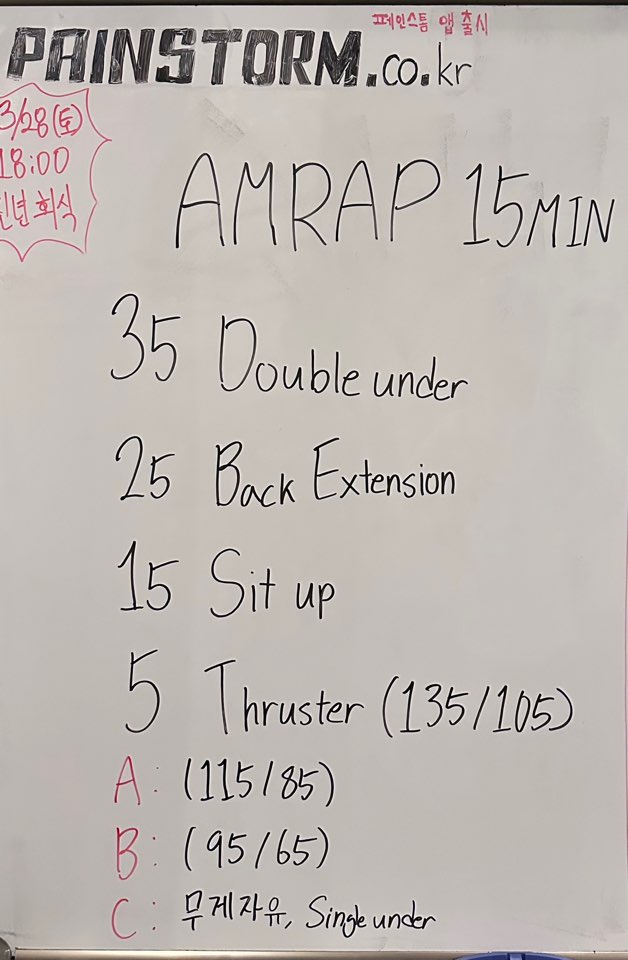 페인스톰 앱 출시
PAINSTORM.co.kr
3/28(토)
18:00
회식
AMRAP 15MIN
35 Double under
25 Back Extension
15 Sit up
5 Thruster (135/105)
A: (115/85)
B: (95/65)
C: 무게자유, Single under